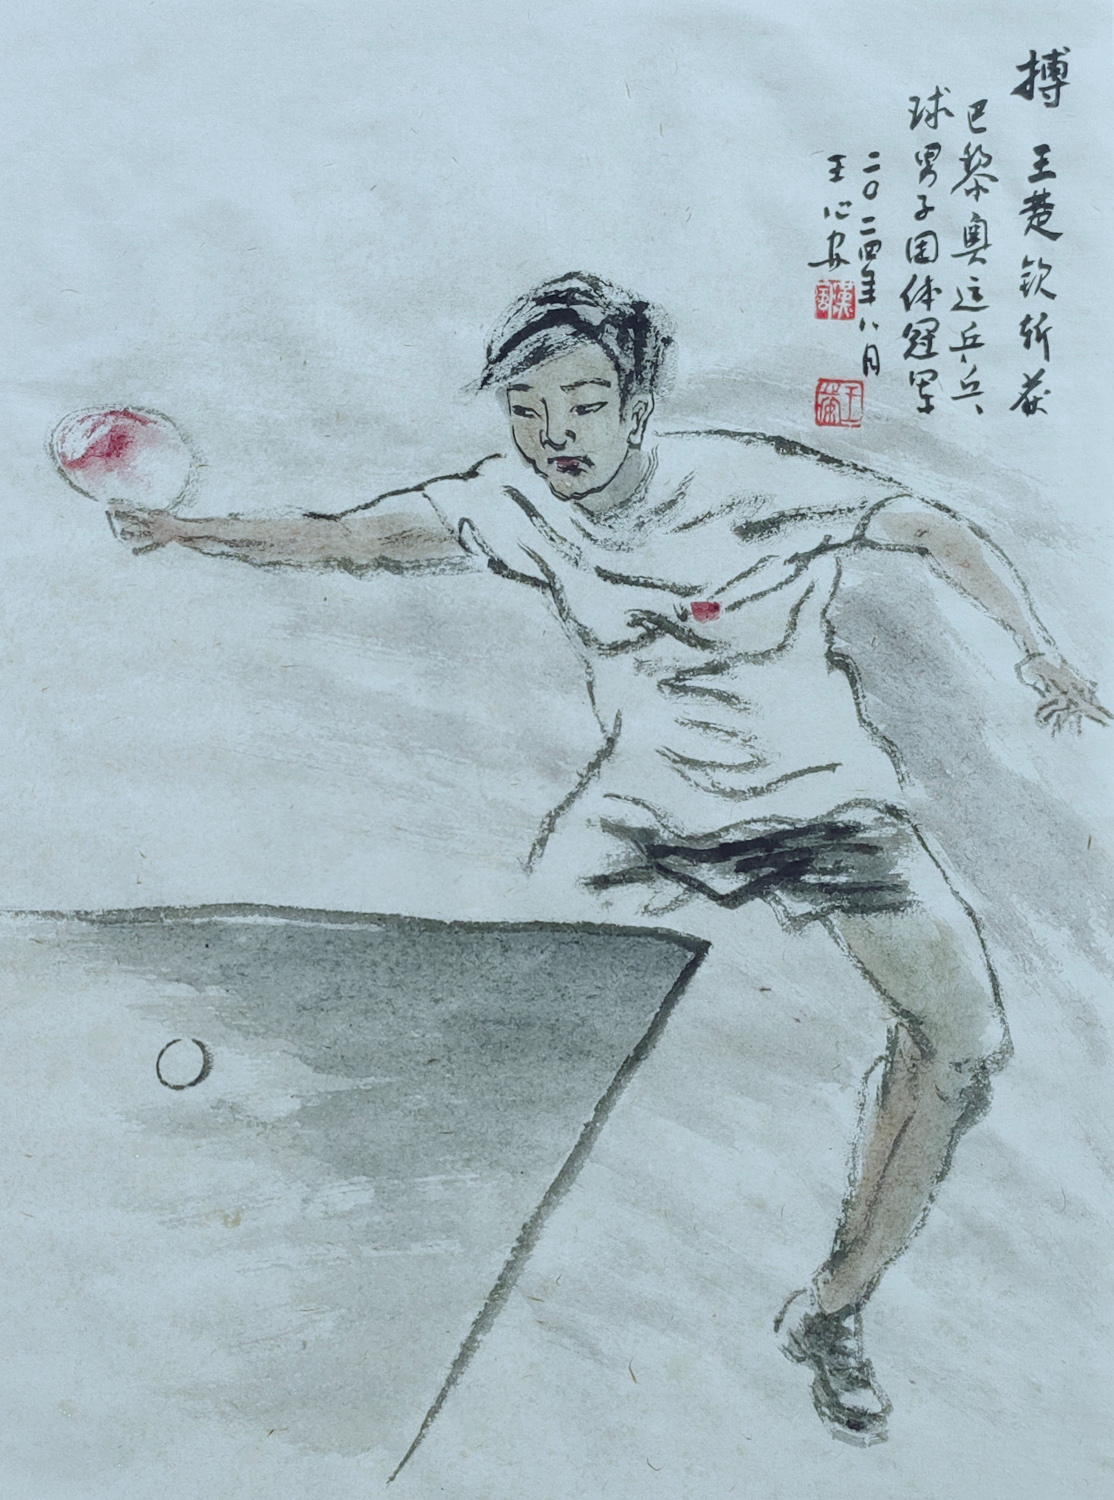 搏 王楚钦斩获
巴黎奥运乒乓
球男子团体冠军
二〇二四年八月
王心安